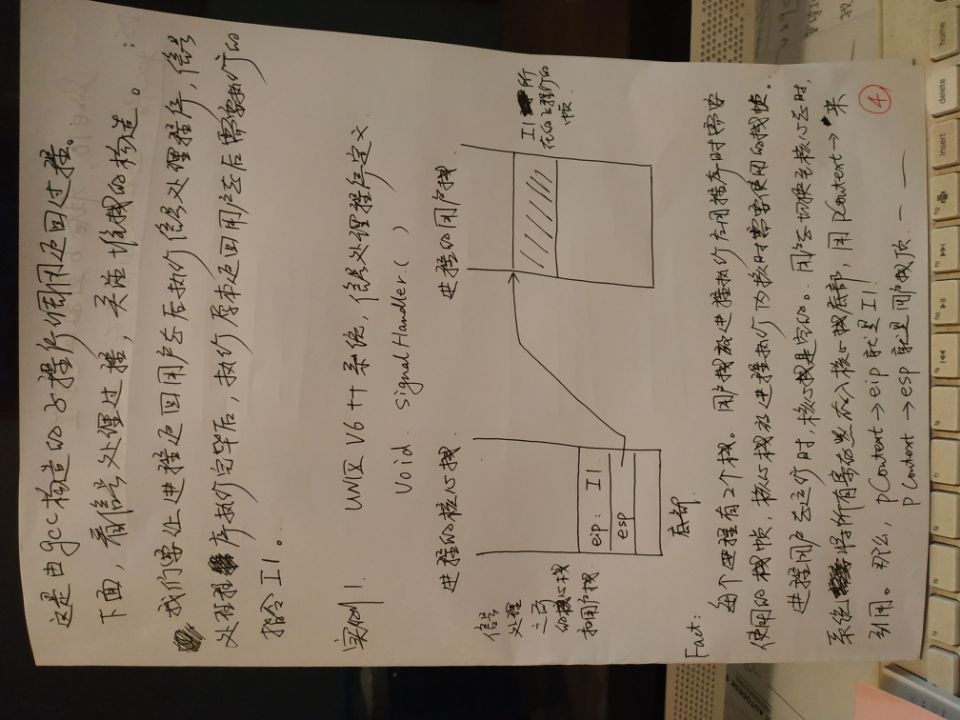 这是由gcc构造的子程序调用返回过程。
下面,看信号处理过程,关注堆栈的构造。
我们要让进程返回用户态后执行信号处理程序,信号
处理程序执行完毕后,执行原本返回用户态后需要执行的
指令I1。
实例1. UNIX V6++系统,信号处理程序定义
void signalHandler()
进程的核心栈
进程的用户栈
信号
处理
之前
的核心栈
和用户栈
eip: I1
esp
底部
I1所
在的子程序的
帧
Fact:
每个进程有2个栈。用户栈放进程执行应用程序时需要
使用的栈帧,核心栈放进程执行内核时需要使用的栈帧。
进程用户态运行时,核心栈是空的。用户态切换至核心态时,
系统将所有寄存器存入核心栈底部,用pContext→来
引用。那么,pContext→eip就是I1
pContext→esp就是用户栈顶.
④
insert
delete
home